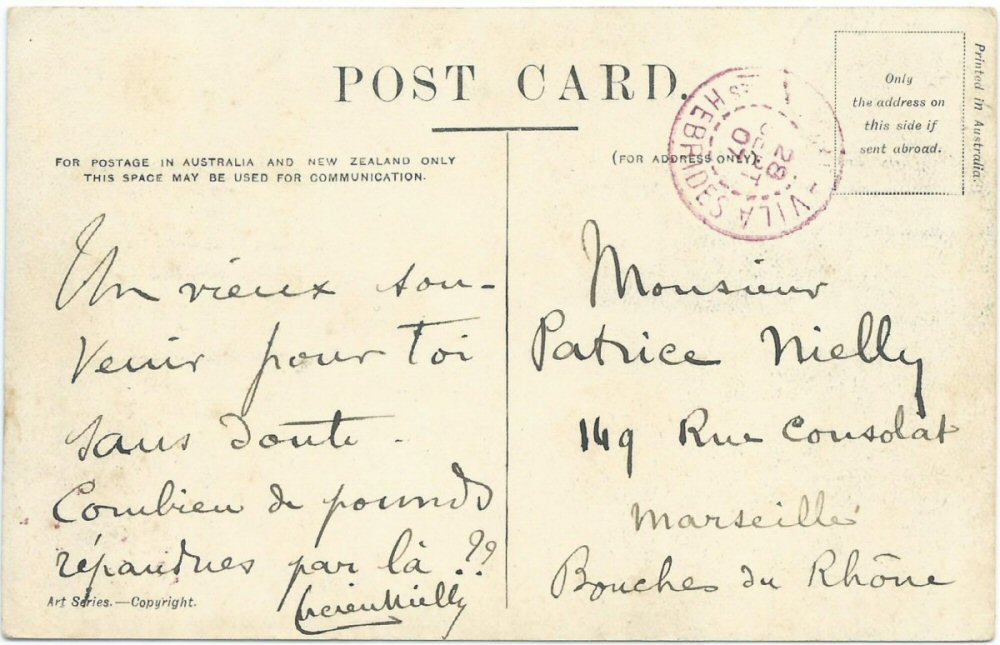 POST CARD.
FOR POSTAGE IN AUSTRALIA AND NEW ZEALAND ONLY
THIS SPACE MAY BE USED FOR COMMUNICATION.
(FOR ADDRESS ONLY).
Only
the address on
this side if
sent abroad.
Printed in Australia.
VILA
HEBRIDES
28
SEPT
07
Un vieux sou-
venir pour toi
sans doute.
Combien de pounds
répandues par là ??
Lucien Nielly
Monsieur
Patrice Nielly
149 Rue Consolat
Marseille
Bouches du Rhône
Art Series.—Copyright.